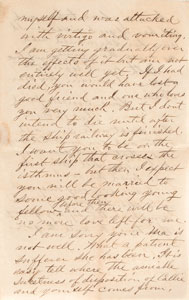 myself and was attacked
with vertigo and vomiting.
I am getting gradually over
the effects of it but am not
entirely well yet. If I had
died, you would have lost a
good friend and one who loves
you very much. But I don't
intend to die until after
the ship railway is finished.
I want you to be on the
first ship that crosses the
isthmus - but then I expect
you will be married to
some good looking young
fellow, and there will be
no more love left for me
I am sorry your ma is
not well. What a patient
sufferer she has been. It is
easy tell where the amiable
sweetness of disposition of Cathie
and yourself comes from.